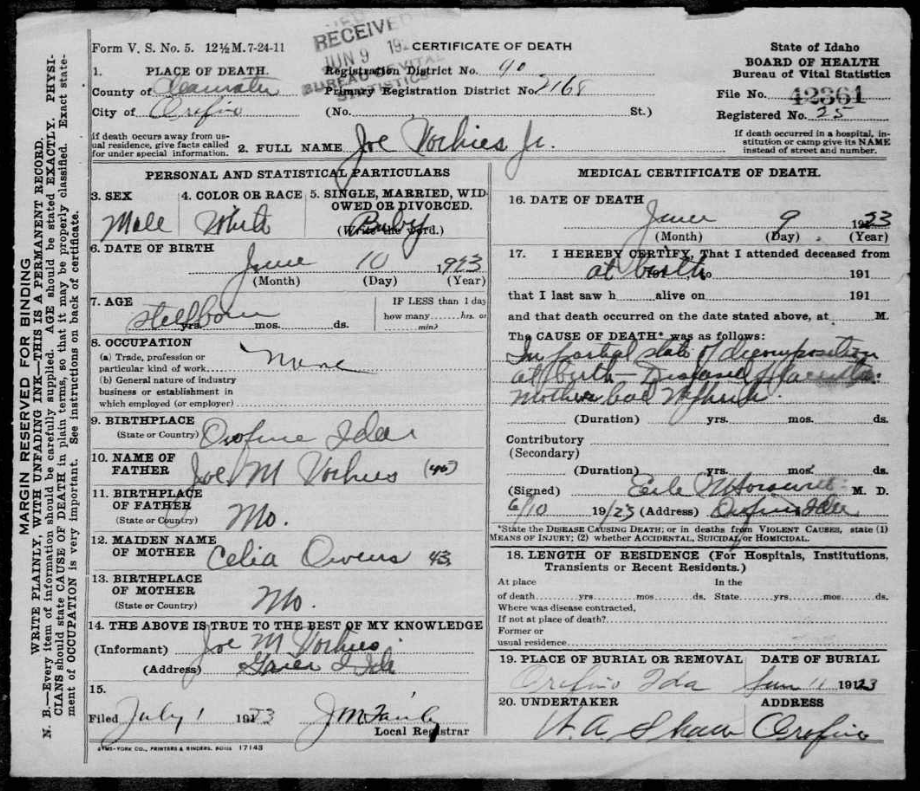 Form V. S. No. 5. 12½M.7-24-11
RECEIVED
JUN 9 192
BUREAU OF VITAL
STATISTICS
CERTIFICATE OF DEATH
State of Idaho
BOARD OF HEALTH
Bureau of Vital Statistics
File No. 42361
Registered No. 25
If death occurred in a hospital, in-
stitution or camp give its NAME
instead of street and number.
1. PLACE OF DEATH.
County of Clearwater
City of Orofino
Registration District No. 40
Primary Registration District No. 2168
(No. St.)
If death occurs away from us-
ual residence, give facts called
for under special information.
2. FULL NAME Joe Vorhies Jr.
PERSONAL AND STATISTICAL PARTICULARS
3. SEX
Male
4. COLOR OR RACE
White
5. SINGLE, MARRIED, WID-
OWED OR DIVORCED.
(Write the word.)
Baby
6. DATE OF BIRTH
June 10 1923
(Month) (Day) (Year)
7. AGE
Stillborn
yrs. mos. ds.
IF LESS than 1 day
how many hrs. or
min?
8. OCCUPATION
(a) Trade, profession or
particular kind of work None
(b) General nature of industry
business or establishment in
which employed (or employer)
9. BIRTHPLACE
(State or Country) Orofino Ida
10. NAME OF
FATHER Joe M Vorhies (46)
11. BIRTHPLACE
OF FATHER
(State or Country) Mo.
12. MAIDEN NAME
OF MOTHER Celia Owens 43
13. BIRTHPLACE
OF MOTHER
(State or Country) Mo.
14. THE ABOVE IS TRUE TO THE BEST OF MY KNOWLEDGE
(Informant) Joe M Vorhies
(Address) Ida
15.
Filed July 1 1923
Local Registrar
SYMS-YORK CO., PRINTERS & BINDERS, BOISE 17143
MEDICAL CERTIFICATE OF DEATH.
16. DATE OF DEATH
June 9 1923
(Month) (Day) (Year)
17. I HEREBY CERTIFY, That I attended deceased from
at birth to 191
that I last saw h alive on 191
and that death occurred on the date stated above, at M.
The CAUSE OF DEATH* was as follows:
In partial state of decomposition
at birth — Diseased Placenta.
Mother had Nephritis.
(Duration) yrs. mos. ds.
Contributory
(Secondary)
(Duration) yrs. mos. ds.
(Signed) M. D.
6/10 1923 (Address) Orofino Ida
*State the DISEASE CAUSING DEATH; or in deaths from VIOLENT CAUSES, state (1)
MEANS OF INJURY; (2) whether ACCIDENTAL, SUICIDAL or HOMICIDAL.
18. LENGTH OF RESIDENCE (For Hospitals, Institutions,
Transients or Recent Residents.)
At place In the
of death yrs mos ds. State yrs. mos. ds.
Where was disease contracted,
If not at place of death?
Former or
usual residence
19. PLACE OF BURIAL OR REMOVAL DATE OF BURIAL
Orofino Ida Jun 11 1923
20. UNDERTAKER ADDRESS
W. A. Shaw Orofino
MARGIN RESERVED FOR BINDING
WRITE PLAINLY, WITH UNFADING INK—THIS IS A PERMANENT RECORD.
N. B.—Every item of information should be carefully supplied. AGE should be stated EXACTLY. PHYSI-
CIANS should state CAUSE OF DEATH in plain terms, so that it may be properly classified. Exact state-
ment of OCCUPATION is very important. See instructions on back of certificate.